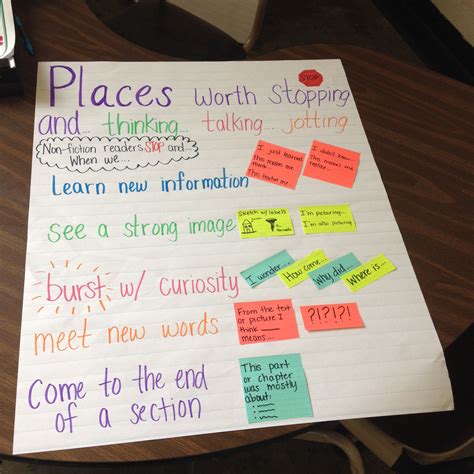 STOP
Places worth Stopping
and... thinking... talking... jotting...
Non-fiction readers STOP and...
When we...
I just learned
This makes me
think
This makes me
I didn't know...
This makes me
realize...
Learn new information
See a strong image
Sketch w/ labels
I'm picturing...
I'm also picturing
burst w/ curiosity
I wonder...
How come...
Why did...
Where is...
meet new words
From the text
or picture I
think
means...
?!?!?!
Come to the end
of a section
This part
or chapter
was mostly
about: